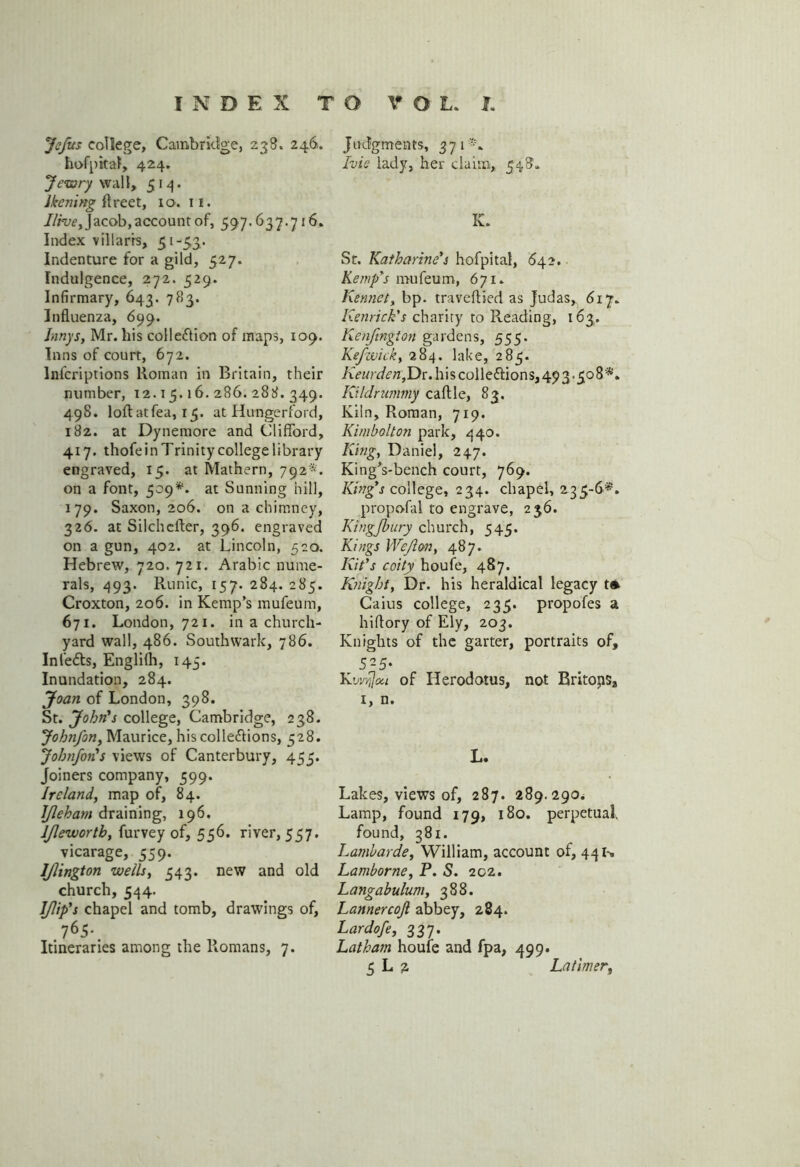 INDEX TO VOL. I.
Jeſus college, Cambridge, 238. 246.
hoſpital, 424.
Jewry wall, 514.
Ikening ſtreet, 10. 11.
Ilive, Jacob, account of, 597. 637. 716.
Index villaris, 51-53.
Indenture for a gild, 527.
Indulgence, 272. 529.
Infirmary, 643. 783.
Influenza, 699.
Innys, Mr. his collection of maps, 109.
Inns of court, 672.
Inſcriptions Roman in Britain, their
number, 12. 15. 16. 286. 288. 349.
498. loſt at ſea, 15. at Hungerford,
182. at Dynemore and Clifford,
417. thoſe in Trinity college library
engraved, 15. at Mathern, 792*.
on a font, 509*. at Sunning hill,
179. Saxon, 206. on a chimney,
326. at Silcheſter, 396. engraved
on a gun, 402. at Lincoln, 520.
Hebrew, 720. 721. Arabic nume-
rals, 493. Runic, 157. 284. 285.
Croxton, 206. in Kemp's muſeum,
671. London, 721. in a church-
yard wall, 486. Southwark, 786.
Inſects, Engliſh, 145.
Inundation, 284.
Joan of London, 398.
St. John's college, Cambridge, 238.
Johnſon, Maurice, his collections, 528.
Johnſon's views of Canterbury, 455.
Joiners company, 599.
Ireland, map of, 84.
Iſleham draining, 196.
Iſleworth, ſurvey of, 556. river, 557.
vicarage, 559.
Iſlington wells, 543. new and old
church, 544.
Iſlip's chapel and tomb, drawings of,
765.
Itineraries among the Romans, 7.
Judgments, 371*.
Ivie lady, her claim, 548.
K.
St. Katharine's hoſpital, 642.
Kemp's muſeum, 671.
Kennet, bp. traveſtied as Judas, 617.
Kenrick's charity to Reading, 163.
Kenſington gardens, 555.
Keſwick, 284. lake, 285.
Keurden, Dr. his collections, 493. 508*.
Kildrummy caſtle, 83.
Kiln, Roman, 719.
Kimbolton park, 440.
King, Daniel, 247.
King's-bench court, 769.
King's college, 234. chapel, 235-6*.
propoſal to engrave, 236.
Kingſbury church, 545.
Kings Weſton, 487.
Kit's coity houſe, 487.
Knight, Dr. his heraldical legacy to
Caius college, 235. propoſes a
hiſtory of Ely, 203.
Knights of the garter, portraits of,
525.
Κυνηlαι of Herodotus, not Britons,
1, n.
L.
Lakes, views of, 287. 289. 290.
Lamp, found 179, 180. perpetual,
found, 381.
Lambarde, William, account of, 441.
Lamborne, P. S. 202.
Langabulum, 388.
Lannercoſt abbey, 284.
Lardoſe, 337.
Latham houſe and ſpa, 499.
5 L 2 Latimer,